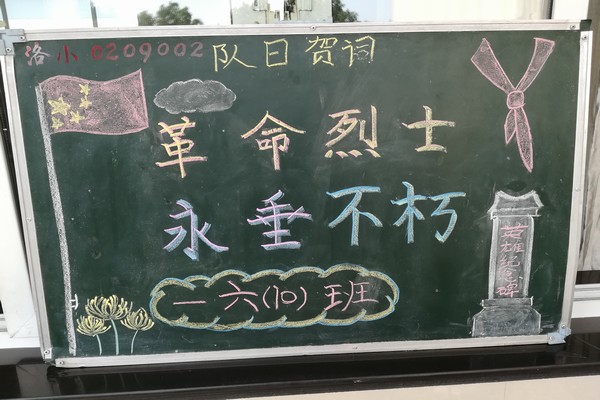 洛小0209002 队日贺词
革命烈士
永垂不朽
一六(10)班
英雄纪念碑